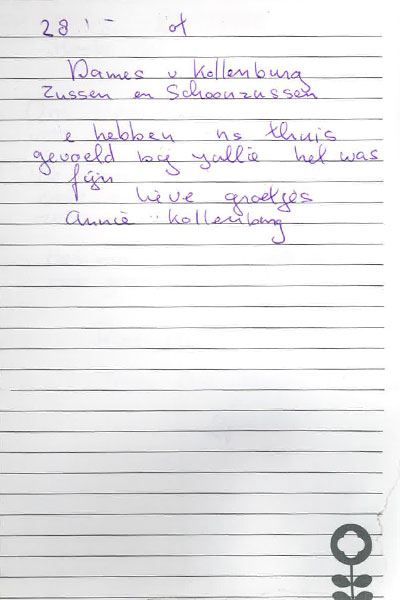 28
Dames v Kollenburg
zussen en Schoonzussen
e hebben ns thuis
gevoeld bij jullie het was
fijn
lieve groetjes
Annie Kollenburg